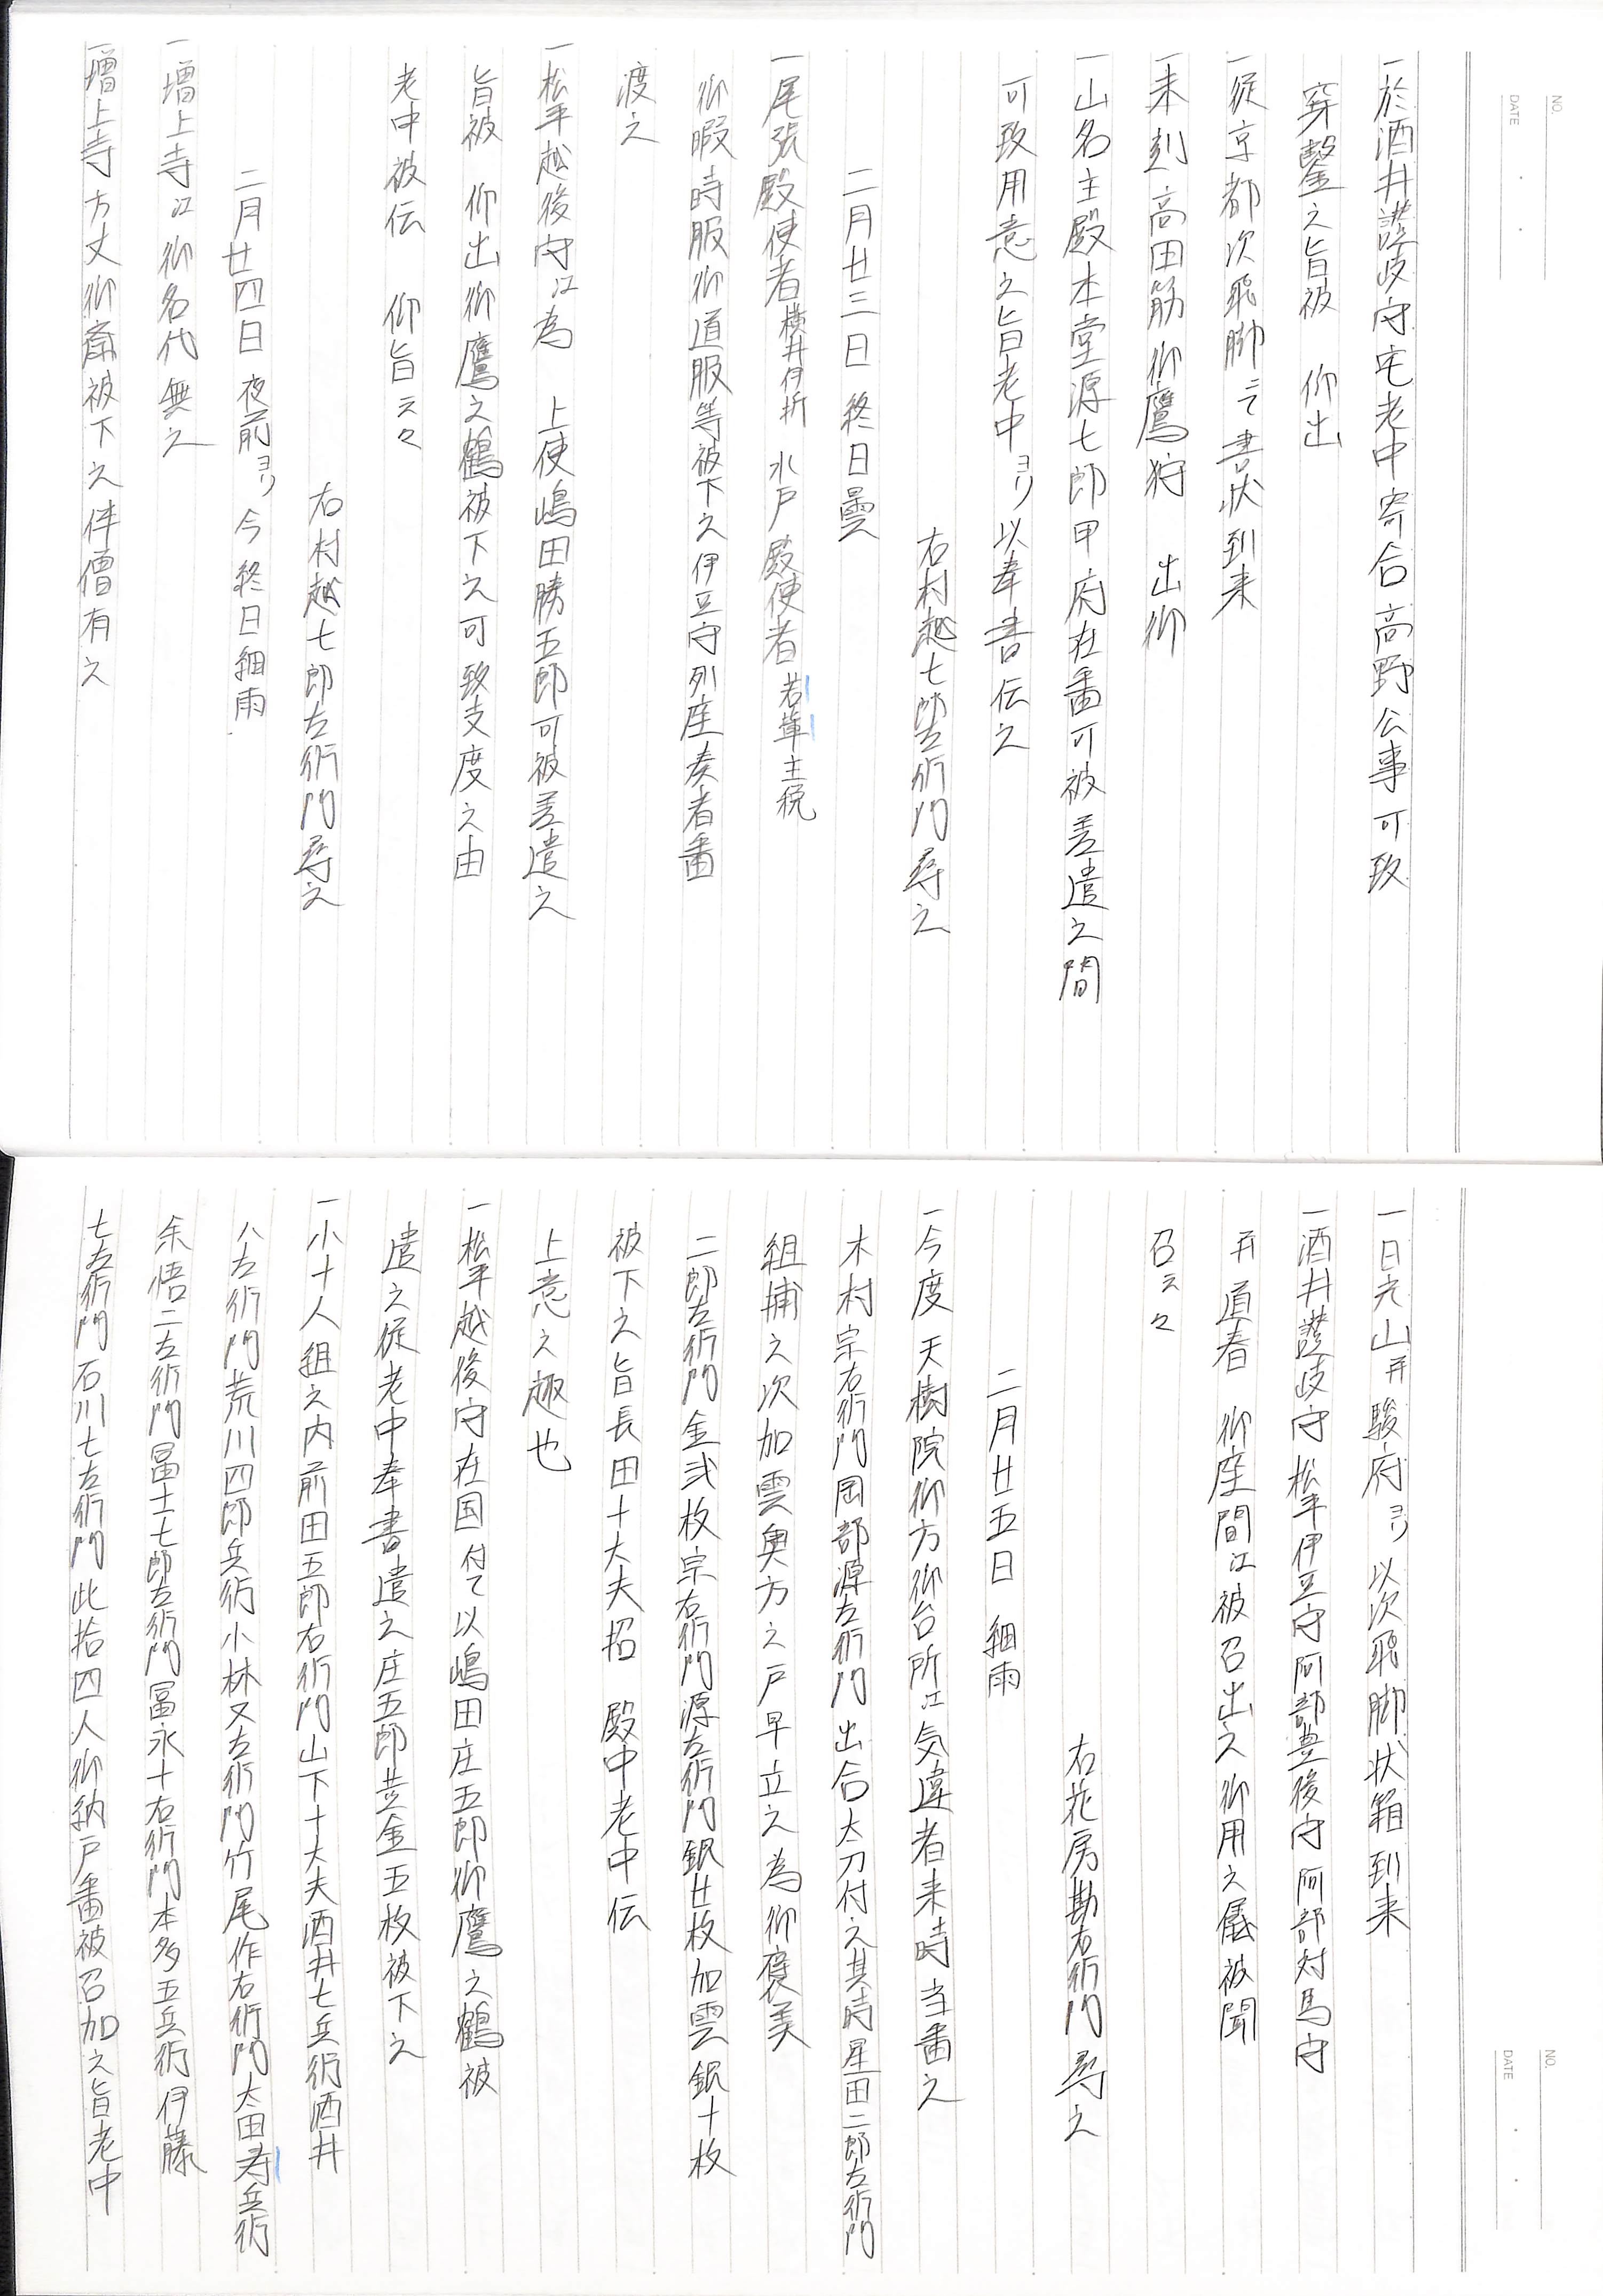 一於酒井讃岐守宅老中寄合高野公事可致
穿鑿之旨被　仰出
一従京都次飛脚ニて書状到来
一未刻高田筋御鷹狩　出御
一山名主殿本堂源七郎甲府在番可被差遣之間
可致用意之旨老中ヨリ以奉書伝之
右村越七郎左衛門尋之
二月廿三日　終日曇
一尾張殿使者横井伊折　水戸殿使者若葉主税
御暇時服御道服等被下之伊豆守列座奏者番
渡之
一松平越後守江為　上使嶋田勝五郎可被差遣之
旨被　仰出御鷹之鶴被下之可致支度之由
老中被伝　仰旨云々
右村越七郎左衛門尋之
二月廿四日　夜前ヨリ今終日細雨
一増上寺江御名代無之
一増上寺方丈御斎被下之伴僧有之
NO.
DATE
一日光山并駿府ヨリ以次飛脚状箱到来
一酒井讃岐守松平伊豆守阿部豊後守阿部対馬守
并道春　御座間江被召出之御用之儀被聞
召云々
右花房勘右衛門尋之
二月廿五日　細雨
一今度天樹院御方御台所江気違者来時当番之
木村宗右衛門岡部源左衛門出合太刀付之其時星田二郎左衛門
組捕之次加雲奥方之戸早立之為御褒美
二郎左衛門金弐枚宗右衛門源左衛門銀廿枚加雲銀十枚
被下之旨長田十大夫招　殿中老中伝
上意之趣也
一松平越後守在国付て以嶋田庄五郎御鷹之鶴被
遣之従老中奉書遣之庄五郎黄金五枚被下之
一小十人組之内前田五郎右衛門山下十大夫酒井七兵衛酒井
八左衛門荒川四郎兵衛小林又左衛門竹尾作右衛門太田寿兵衛
余悟二左衛門冨士七郎左衛門冨永十右衛門本多五兵衛伊藤
七左衛門石川七左衛門此拾四人御納戸番被召加之旨老中
NO.
DATE